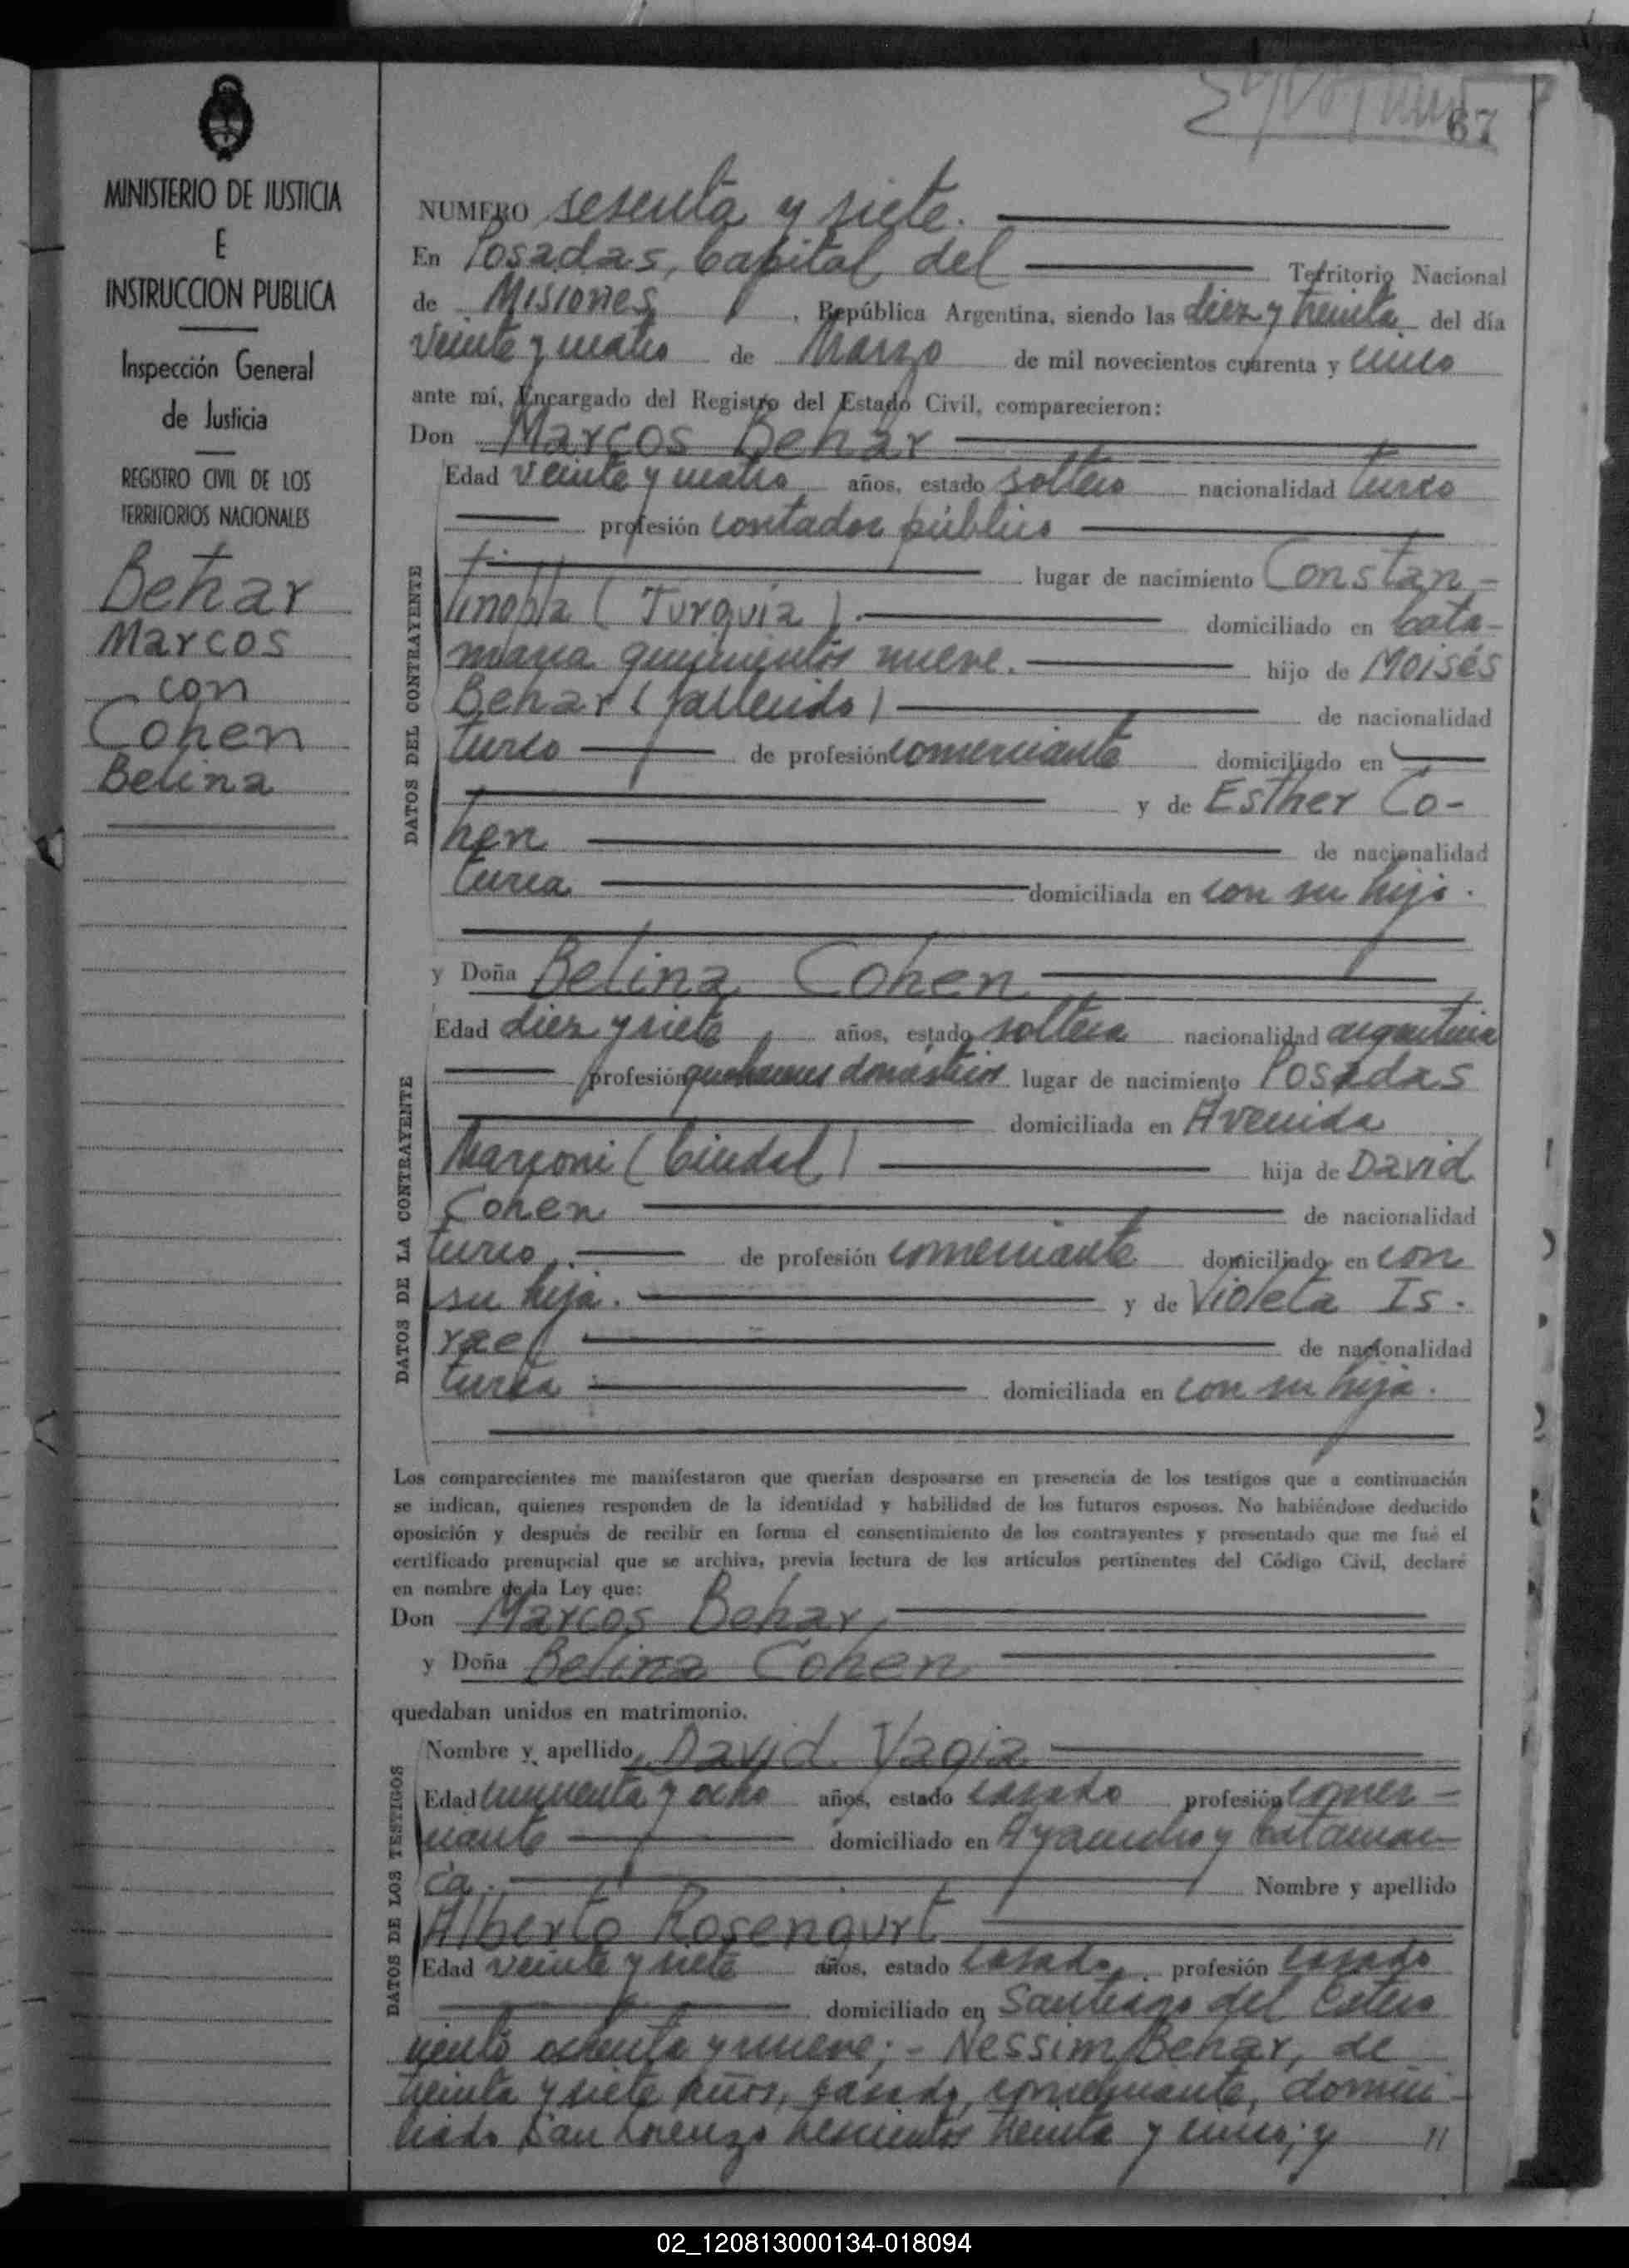 67
MINISTERIO DE JUSTICIA
E
INSTRUCCION PUBLICA
Inspección General
de Justicia
REGISTRO CIVIL DE LOS
TERRITORIOS NACIONALES
Behar
Marcos
con
Cohen
Belina
NUMERO sesenta y siete.
En Posadas, Capital del Territorio Nacional
de Misiones, República Argentina, siendo las diez y treinta del día
veinte y cuatro de Marzo de mil novecientos cuarenta y cinco
ante mí, Encargado del Registro del Estado Civil, comparecieron:
Don Marcos Behar
DATOS DEL CONTRAYENTE
Edad veinte y cuatro años, estado soltero nacionalidad turco
profesión contador público
lugar de nacimiento Constan-
tinopla (Turquía). domiciliado en Cata-
marca quinientos nueve. hijo de Moisés
Behar (fallecido) de nacionalidad
turco de profesión comerciante domiciliado en
y de Esther Co-
hen de nacionalidad
turca domiciliada en con su hijo.
y Doña Belina Cohen
DATOS DE LA CONTRAYENTE
Edad diez y siete años, estado soltera nacionalidad argentina
profesión quehaceres domésticos lugar de nacimiento Posadas
domiciliada en Avenida
Marconi (Ciudad) hija de David
Cohen de nacionalidad
turco, de profesión comerciante domiciliado en con
su hija. y de Violeta Is-
rael de nacionalidad
turca domiciliada en con su hija.
Los comparecientes me manifestaron que querían desposarse en presencia de los testigos que a continuación
se indican, quienes responden de la identidad y habilidad de los futuros esposos. No habiéndose deducido
oposición y después de recibir en forma el consentimiento de los contrayentes y presentado que me fué el
certificado prenupcial que se archiva, previa lectura de los artículos pertinentes del Código Civil, declaré
en nombre de la Ley que:
Don Marcos Behar,
y Doña Belina Cohen
quedaban unidos en matrimonio.
DATOS DE LOS TESTIGOS
Nombre y apellido, David Vagia
Edad cincuenta y ocho años, estado casado profesión comer-
ciante domiciliado en Ayacucho y Catamar-
ca. Nombre y apellido
Alberto Rosengurt
Edad veinte y siete años, estado casado, profesión casado
domiciliado en Santiago del Estero
ciento ochenta y nueve; - Nessim Behar, de
treinta y siete años, casado, comerciante, domici-
liado San Lorenzo trescientos treinta y cinco; y //
02_120813000134-018094